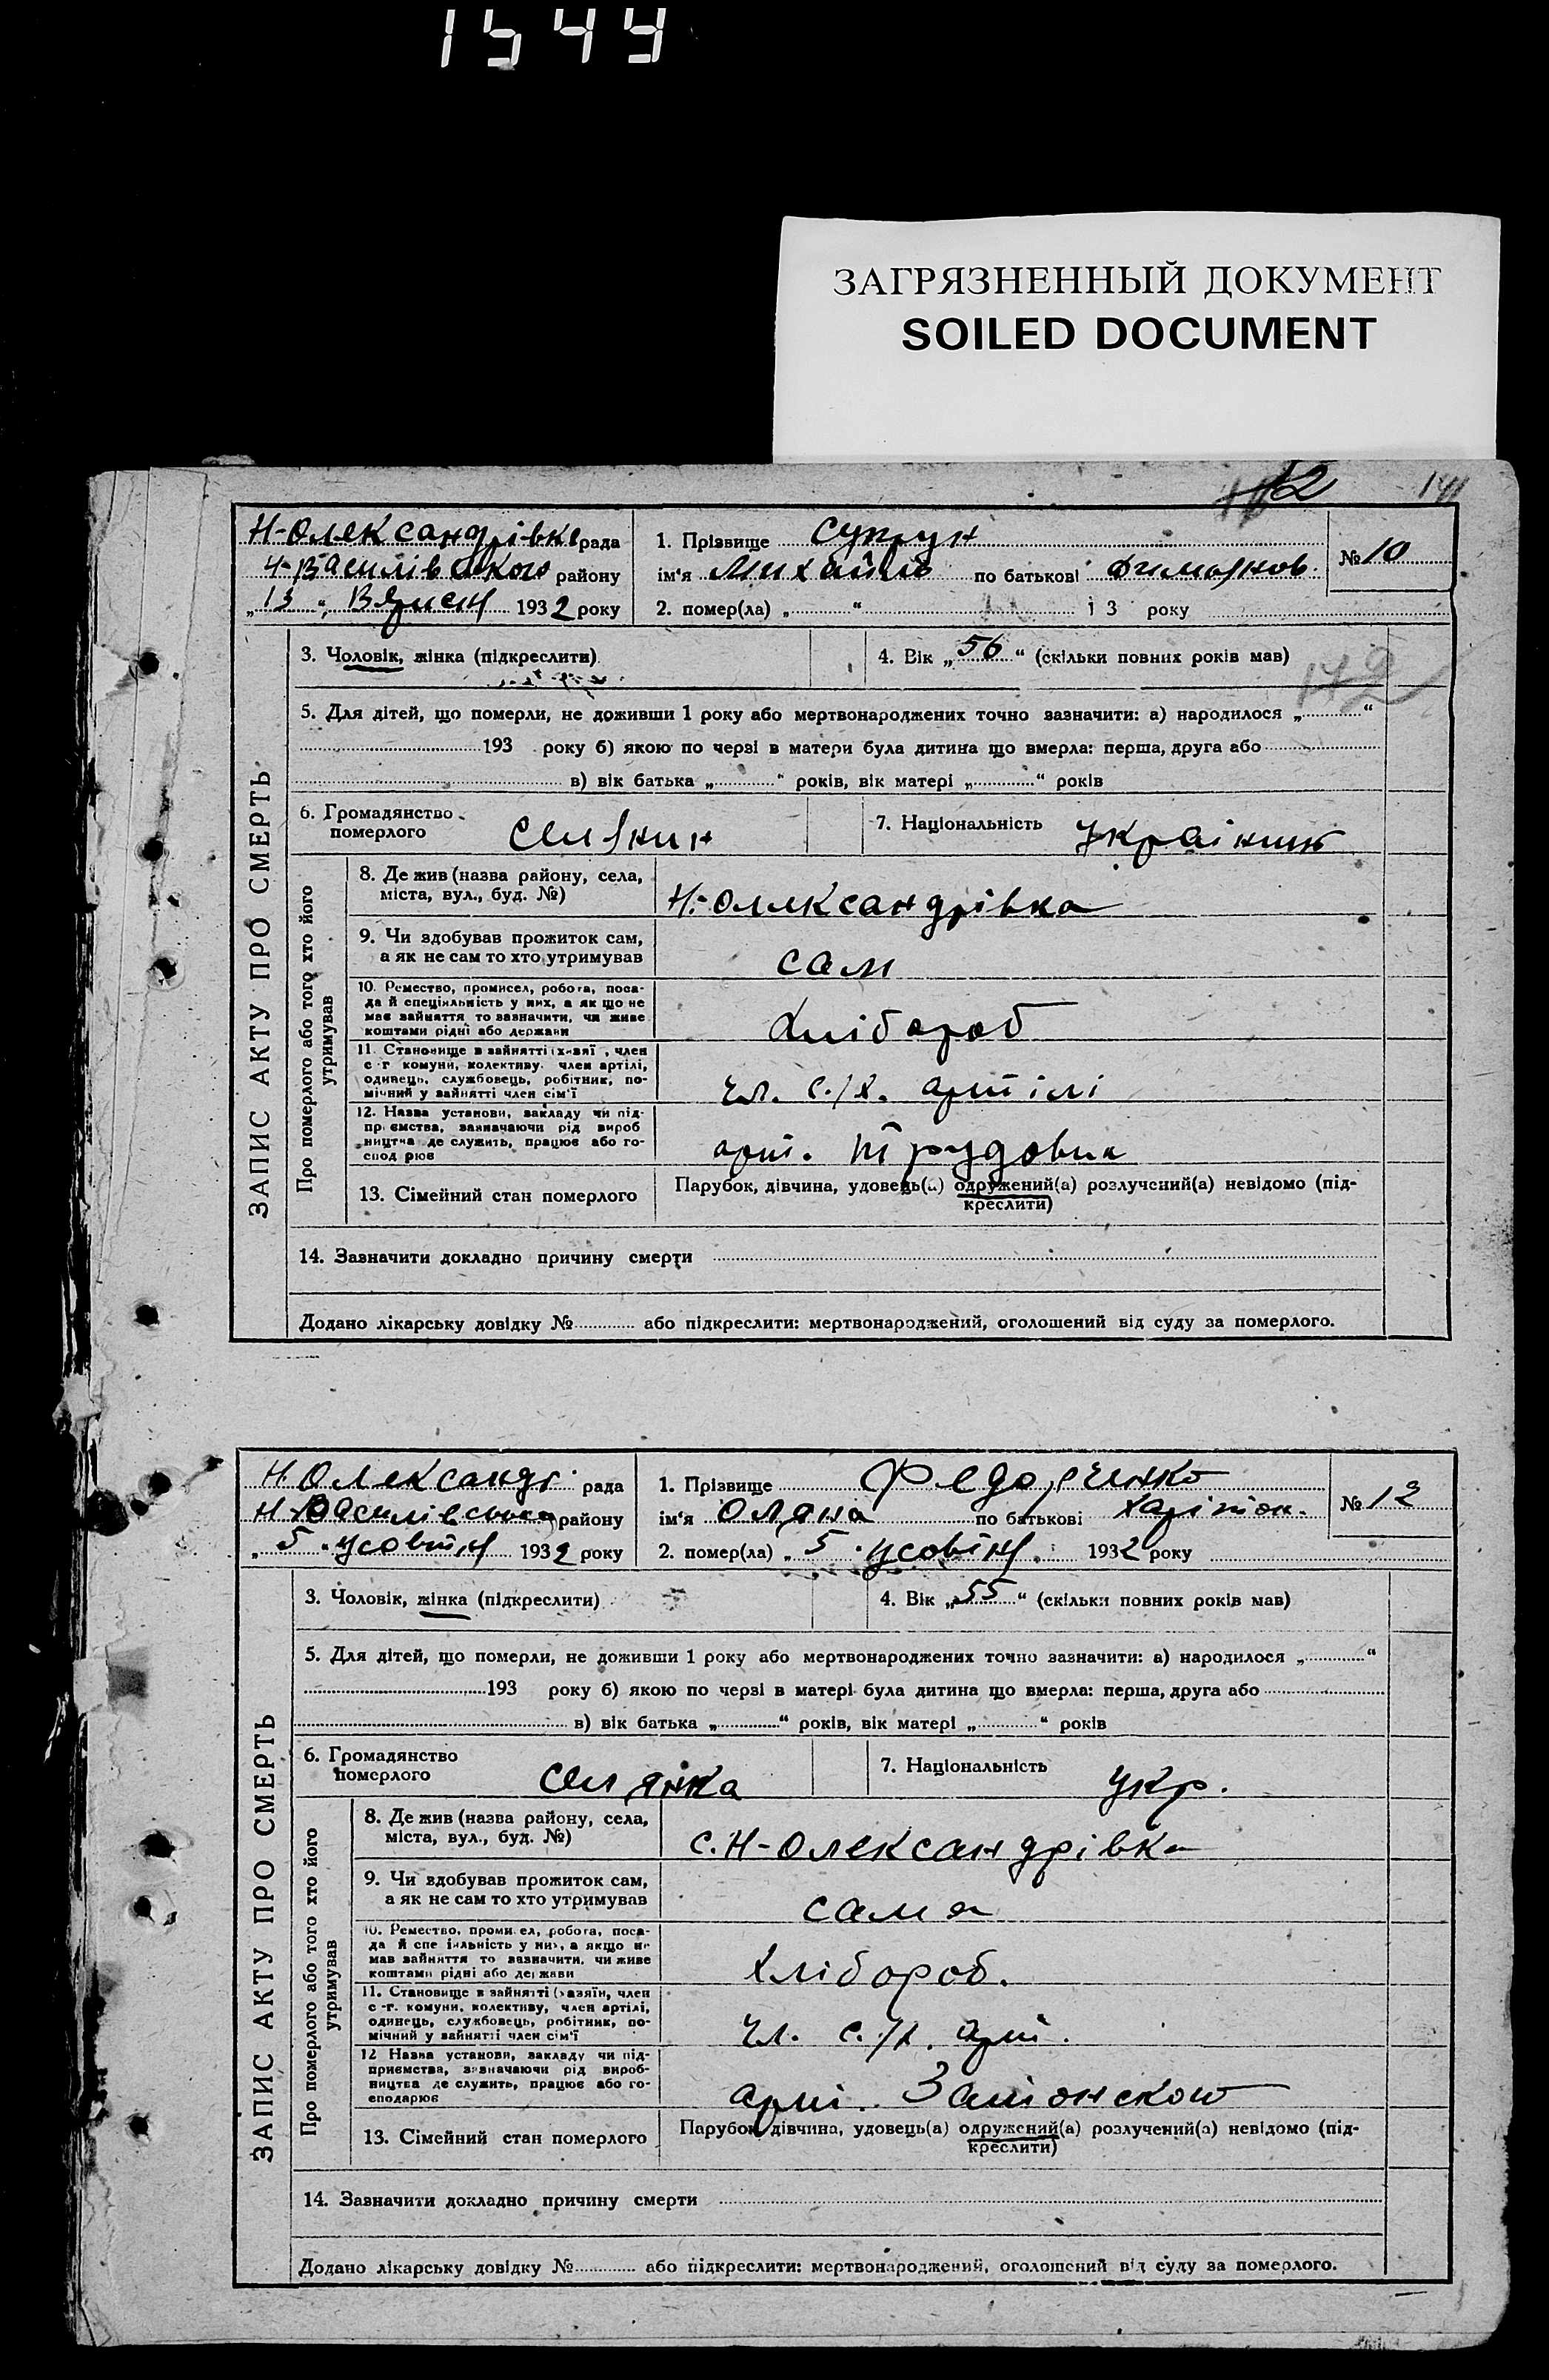 1544
ЗАГРЯЗНЕННЫЙ ДОКУМЕНТ
SOILED DOCUMENT
141
Н-Олександрівка рада
Н-Василівського району
„13“ 1932 року
1. Прізвище Супрун
ім'я Михайло по батькові
№ 10
2. помер(ла) „ “ 1 3 року
3. Чоловік, жінка (підкреслити)
4. Вік „56“ (скільки повних років мав)
172
5. Для дітей, що померли, не доживши 1 року або мертвонароджених точно зазначити: а) народилося „ “
193 року б) якою по черзі в матери була дитина що вмерла: перша, друга або
в) вік батька „ “ років, вік матері „ “ років
6. Громадянство померлого селянин
7. Національність українець
ЗАПИС АКТУ ПРО СМЕРТЬ
Про померлого або того хто його утримував
8. Де жив (назва району, села,
міста, вул., буд. №)
Н-Олександрівка
9. Чи здобував прожиток сам,
а як не сам то хто утримував
сам
10. Ремество, промисел, робота, поса-
да й спеціяльність у них, а як що не
має зайняття то зазначити, чи живе
коштами рідні або держави
Хлібороб
11. Становище в зайнятті (хазяї , член
с-г комуни, колективу, член артілі,
одинець, службовець, робітник, по-
мічний у зайнятті член сім'ї
чл. с./х. артілі
12. Назва установи, закладу чи під-
приємства, зазначаючи рід вироб
ництва де служить, працює або го-
спод рює
арт. Трудовик
13. Сімейний стан померлого
Парубок, дівчина, удовець(а) одружений(а) розлучений(а) невідомо (під-
креслити)
14. Зазначити докладно причину смерти
Додано лікарську довідку № або підкреслити: мертвонароджений, оголошений від суду за померлого.
Н.Олександр. рада
Н-Василівського району
„5“ жовтня 1932 року
1. Прізвище Федорченко
ім'я Оляна по батькові Харітон.
№ 12
2. помер(ла) „5“ жовтня 1932 року
3. Чоловік, жінка (підкреслити)
4. Вік „55“ (скільки повних років мав)
5. Для дітей, що померли, не доживши 1 року або мертвонароджених точно зазначити: а) народилося „ “
193 року б) якою по черзі в матері була дитина що вмерла: перша, друга або
в) вік батька „ “ років, вік матері „ “ років
6. Громадянство померлого селянка
7. Національність укр.
ЗАПИС АКТУ ПРО СМЕРТЬ
Про померлого або того хто його утримував
8. Де жив (назва району, села,
міста, вул., буд. №)
с. Н-Олександрівка
9. Чи здобував прожиток сам,
а як не сам то хто утримував
сама
10. Ремество, проми ел, робота, поса-
да й спе іяльність у них, а якщо не
мав зайняття то зазначити, чи живе
коштами рідні або держави
Хлібороб.
11. Становище в зайнятті (хазяїн, член
с-г. комуни, колективу, член артілі,
одинець, службовець, робітник, по-
мічний у зайнятті член сім'ї
чл. с./х. арт.
12 Назва установи, закладу чи під-
приємства, зазначаючи рід вироб-
ництва де служить, працює або го-
сподарює
арт. Затонского
13. Сімейний стан померлого
Парубок, дівчина, удовець(а) одружений(а) розлучений(а) невідомо (під-
креслити)
14. Зазначити докладно причину смерти
Додано лікарську довідку № або підкреслити: мертвонароджений, оголошений від суду за померлого.